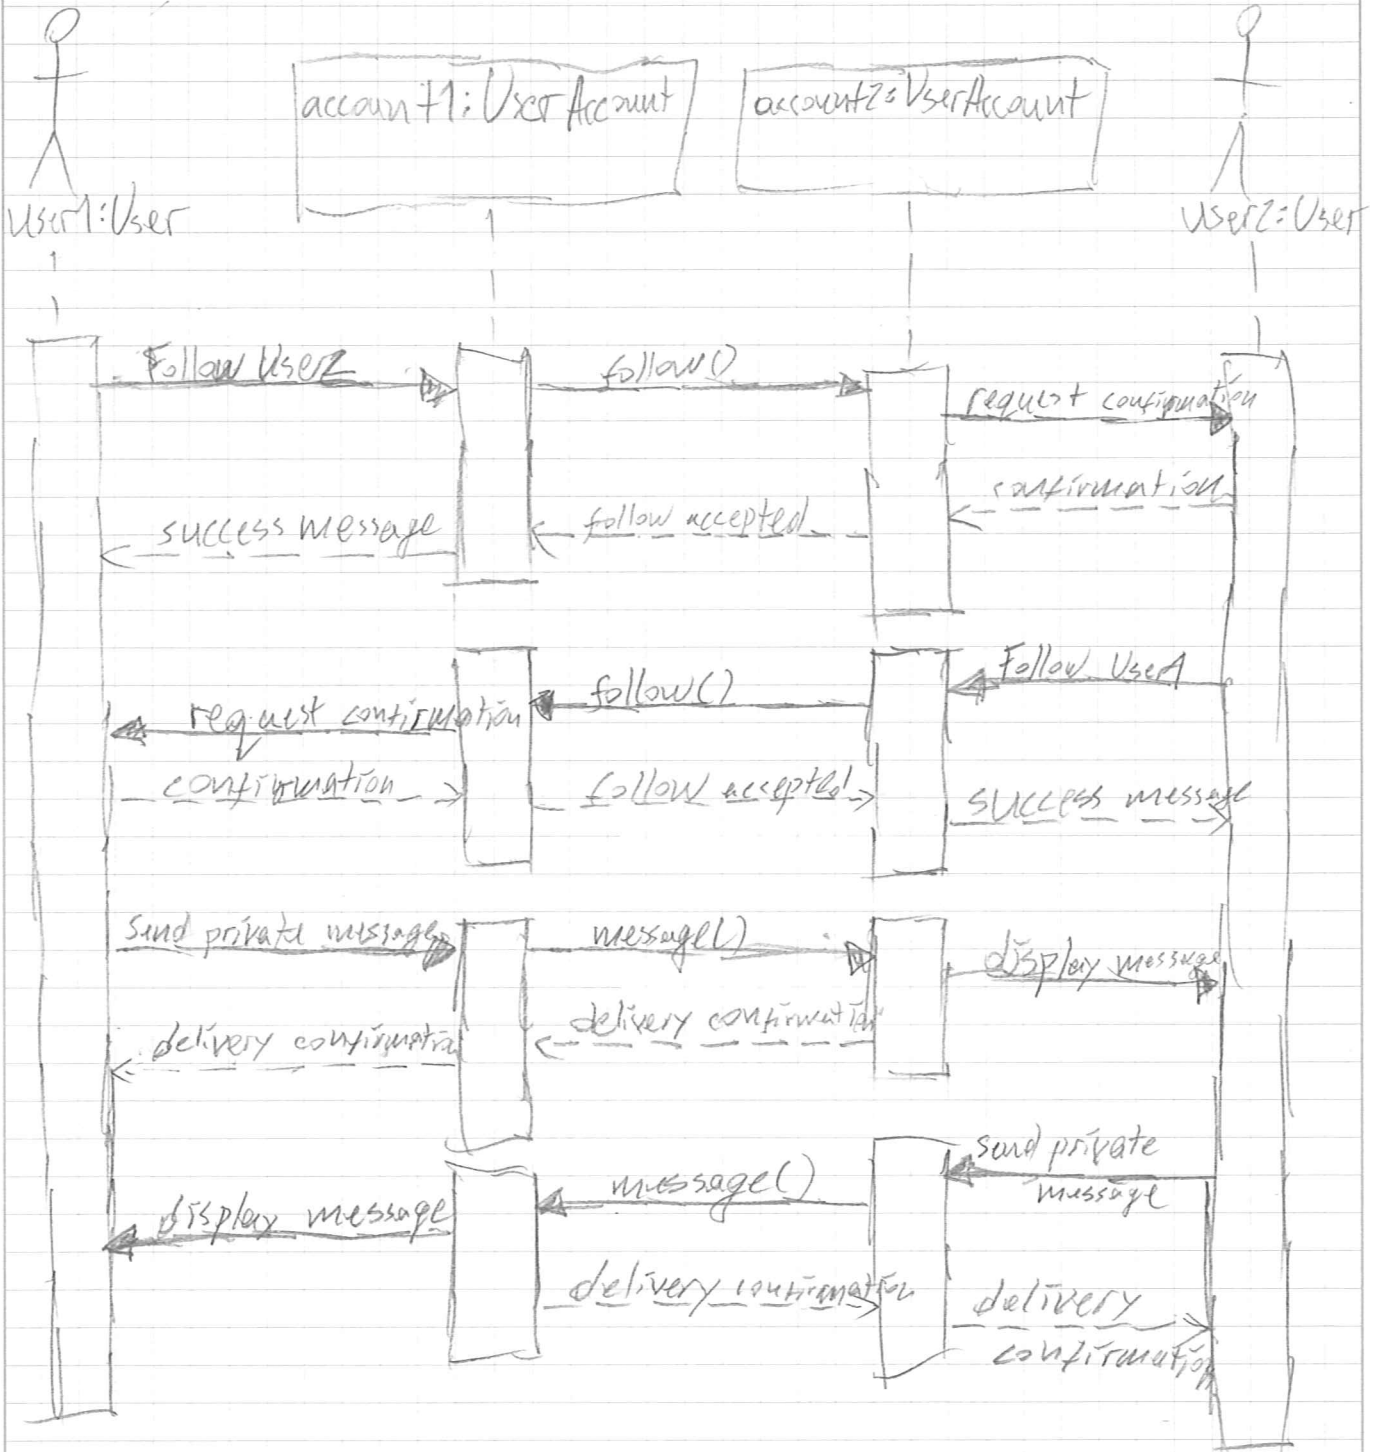 account1:UserAccount
account2:UserAccount
User1:User
User2:User
Follow User2
follow()
request confirmation
confirmation
follow accepted
success message
Follow User1
follow()
request confirmation
confirmation
follow accepted
success message
send private message
message()
display message
delivery confirmation
delivery confirmation
send private
message
message()
display message
delivery confirmation
delivery
confirmation